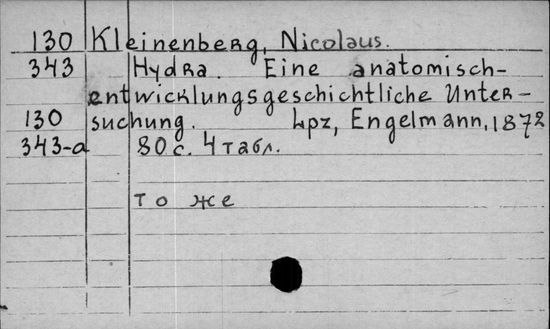 130 Kleinenberg, Nicolaus.
343 Hydra. Eine anatomisch-
entwicklungsgeschichtliche Unter-
130 suchung. Lpz, Engelmann, 1872
343-a 80 с. 4 табл.
то же